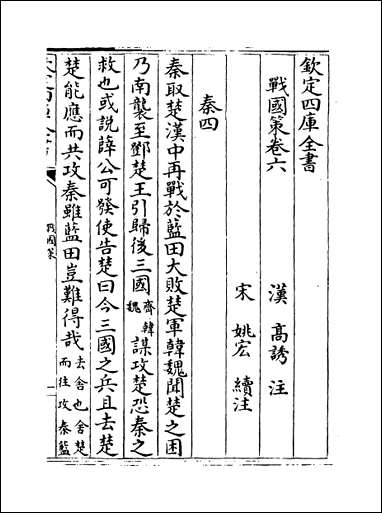 欽定四庫全書
戰國策卷六
漢 高誘 注
宋 姚宏 續注
秦四
秦取楚漢中再戰於藍田大敗楚軍韓魏聞楚之困
乃南襲至鄧楚王引歸後三國齊韓魏謀攻楚恐秦之
救也或說薛公可發使告楚曰今三國之兵且去楚
楚能應而共攻秦雖藍田豈難得哉去舍也舍楚而往攻秦藍
戰國策
一